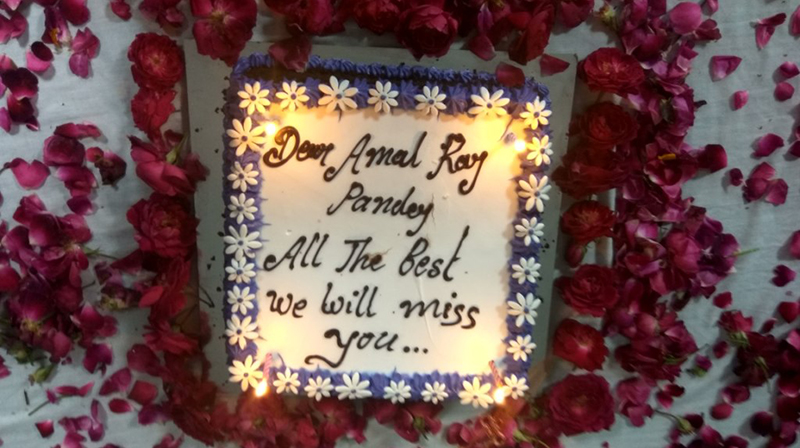 Dear Amal Ray
Pandey
All The Best
We Will miss
you...